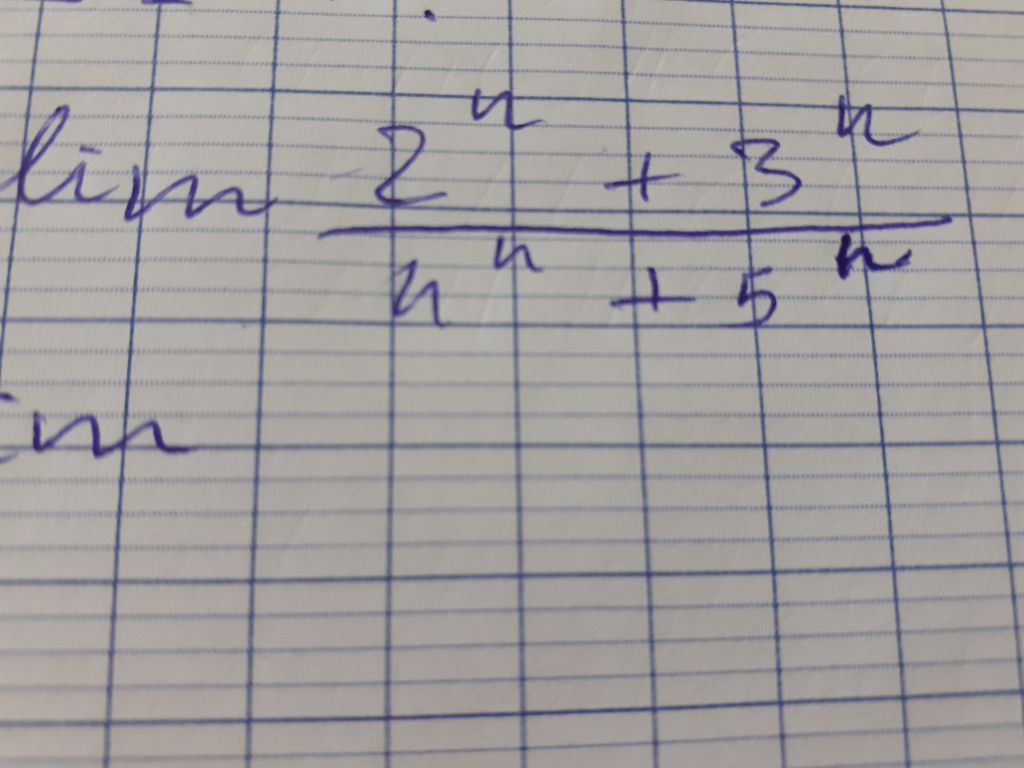 lim (2^n + 3^n) / (n^n + 5^n)
im